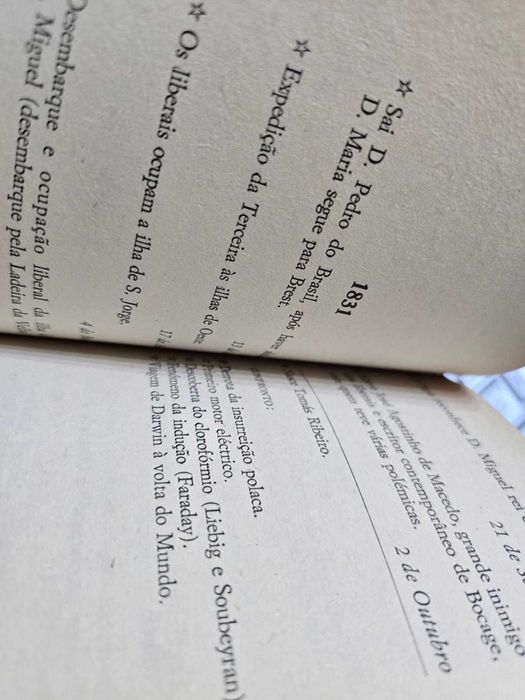 1831
☆ Sai D. Pedro do Brasil, após
D. Maria segue para Brest.
☆ Expedição da Terceira às ilhas de
☆ Os liberais ocupam a ilha de S. Jorge.
Desembarque e ocupação liberal da
Miguel (desembarque pela Ladeira da
reconhece D. Miguel rei
21 de
José Agostinho de Macedo, grande inimigo
e escritor contemporâneo de Bocage,
quem teve várias polémicas.
2 de Outubro
Tomás Ribeiro.
da insurreição polaca.
Primeiro motor eléctrico.
Descoberta do clorofórmio (Liebig e Soubeyran)
da indução (Faraday).
Viagem de Darwin à volta do Mundo.